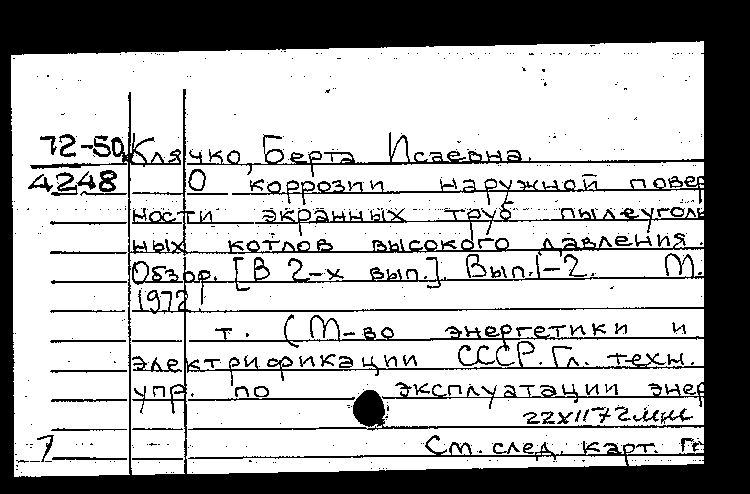 72-50 Клячко, Берта Исаевна.
4248 О коррозии наружной повер
ности экранных труб пылеуголь
ных котлов высокого давления.
Обзор. [В 2-х вып.]. Вып. 1-2. М.
1972
т. (М-во энергетики и
электрификации СССР. Гл. техн.
упр. по эксплуатации энер
22 XII 72 мис
См. след. карт.